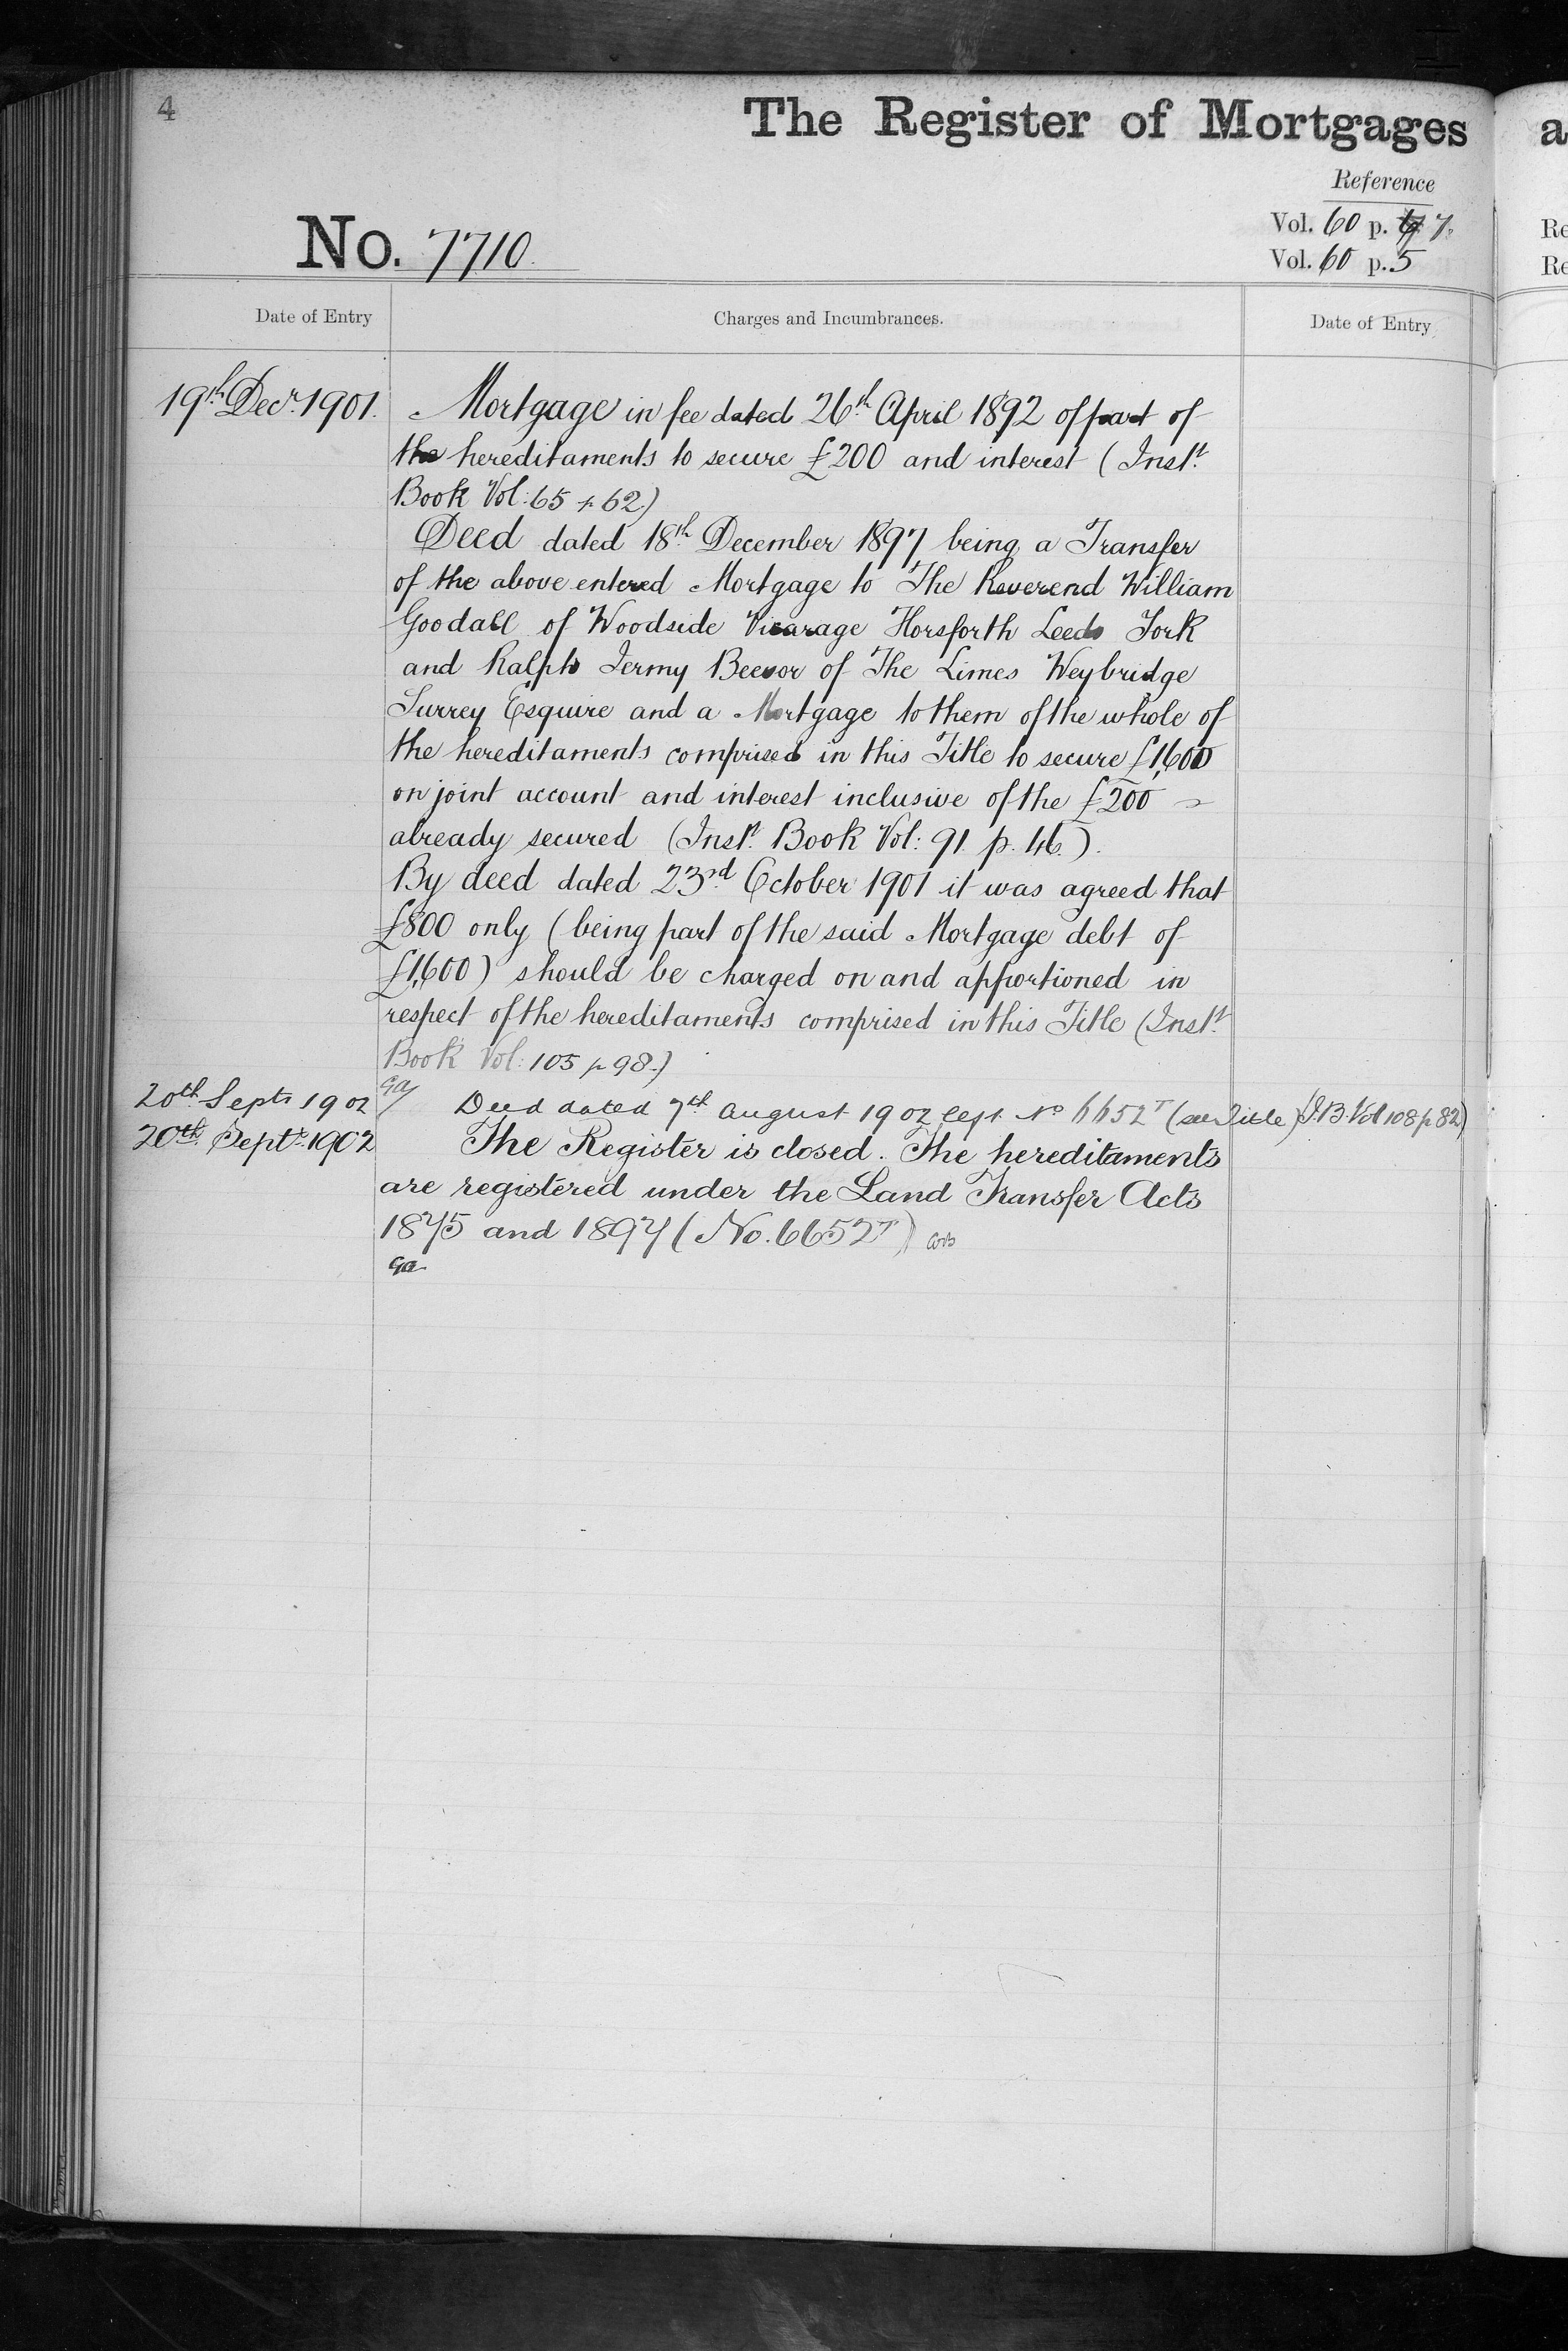 4
The Register of Mortgages
a
Reference
Vol. 60 p. 7.
Re
No. 7710.
Vol. 60 p. 5
Re
Date of Entry
Charges and Incumbrances.
Date of Entry
19th Decr. 1901. Mortgage in fee dated 26th April 1892 of part of
the hereditaments to secure £200 and interest (Instt.
Book Vol: 65 p 62)
Deed dated 18th December 1897 being a Transfer
of the above entered Mortgage to The Reverend William
Goodall of Woodside Vicarage Horsforth Leeds York
and Ralph Jermy Beevor of The Limes Weybridge
Surrey Esquire and a Mortgage to them of the whole of
the hereditaments comprised in this Title to secure £1,600
on joint account and interest inclusive of the £200
already secured (Instt. Book Vol: 91 p. 46.).
By deed dated 23rd October 1901 it was agreed that
£800 only (being part of the said Mortgage debt of
£1,600) should be charged on and apportioned in
respect of the hereditaments comprised in this Title (Instt.
Book Vol: 105 p 98.)
ga
20th Septr 1902 Deed dated 7th August 1902 No 6652T (see Title) (I.B. Vol 108 p 82)
20th Septr. 1902 The Register is closed. The hereditaments
are registered under the Land Transfer Acts
1875 and 1897 (No. 6652T)
ga